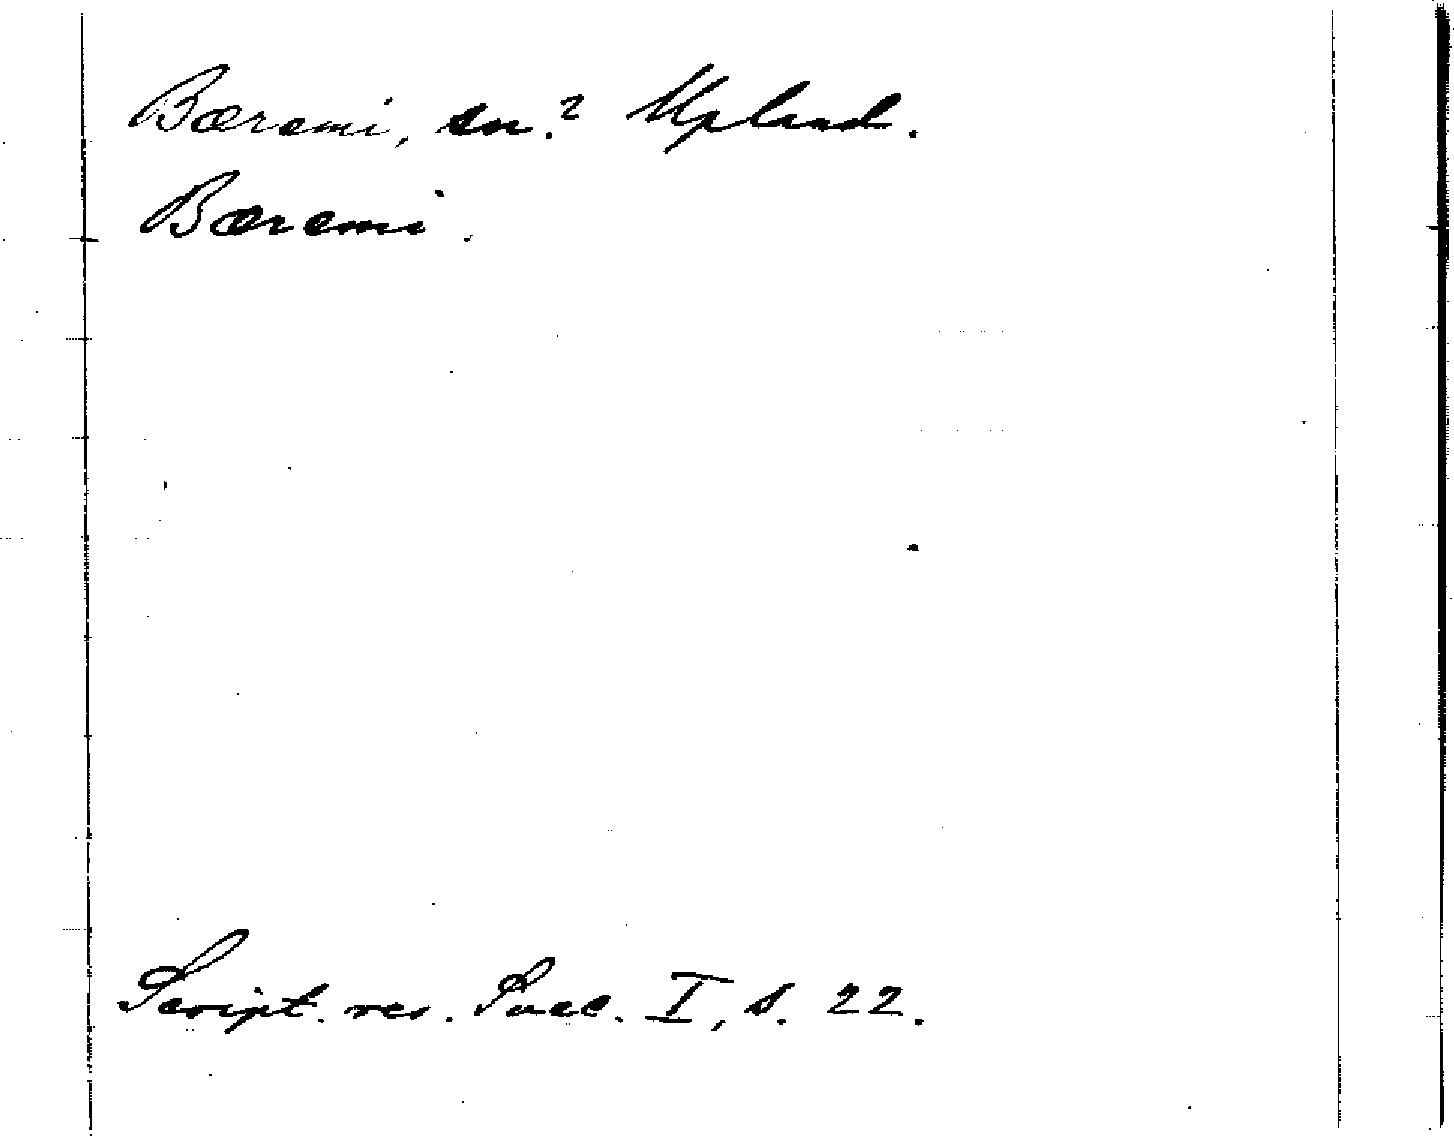 Bæremi, sn.? Upland.
Bæremi.
Script. rer. Suec. I, s. 22.